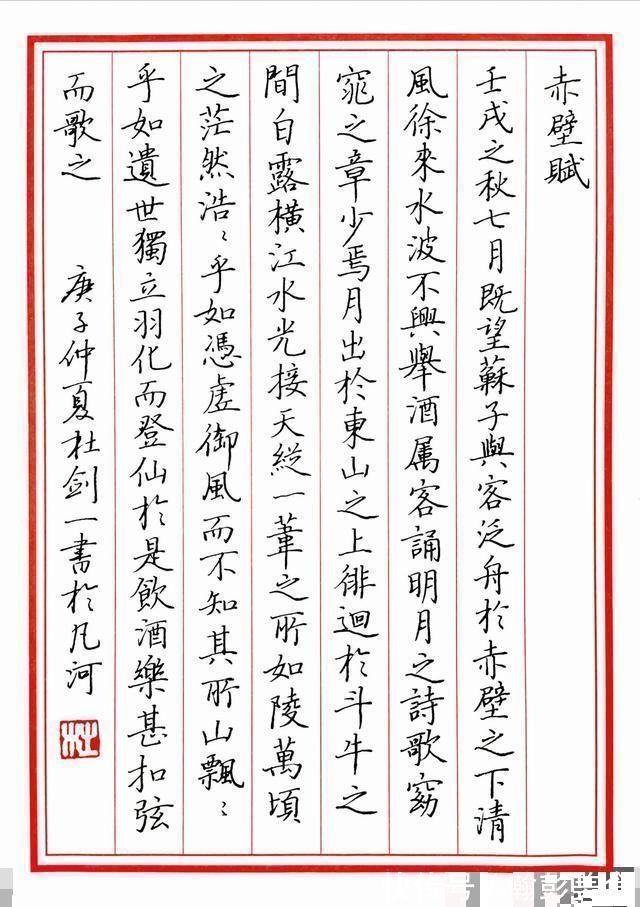 赤壁賦
壬戌之秋七月既望蘇子與客泛舟於赤壁之下清
風徐來水波不興舉酒属客誦明月之詩歌窈
窕之章少焉月出於東山之上徘迴於斗牛之
間白露橫江水光接天縱一葦之所如陵萬頃
之茫然浩〻乎如馮虛御風而不知其所山飄〻
乎如遺世獨立羽化而登仙於是飲酒樂甚扣弦
而歌之
庚子仲夏杜劍一書於凡河
杜